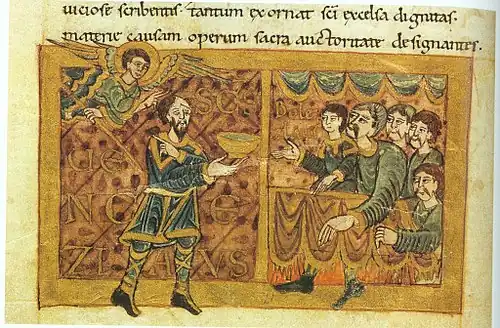 uiciose scribentis. tantum ex ornat scī excelsa dignitas.
materie causam operum sacra auctoritate designantes.
SCS
VE
NC E
ZLAVS